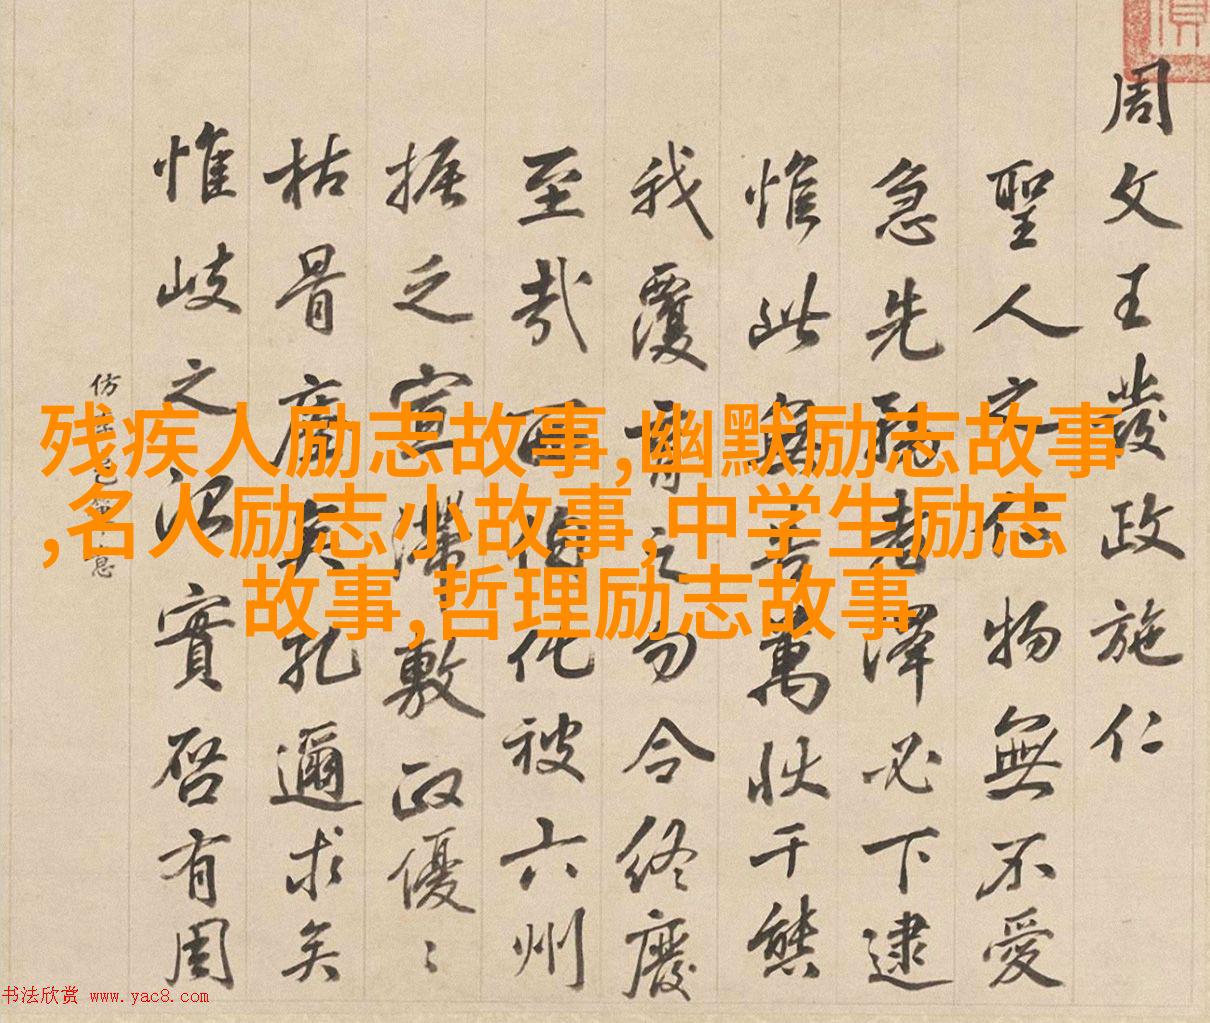 周文王發政施仁
聖人之於物無不愛
急先澤必下逮
惟此無告萬狀千態
我覆育之勿令終廢
至哉西伯化被六州
振之宣滯敷政優〻
枯骨矣孔邇求矣
惟岐之治實啓有周
仿
残疾人励志故事,幽默励志故事
,名人励志小故事,中学生励志
故事,哲理励志故事
书法欣赏 www.yac8.com